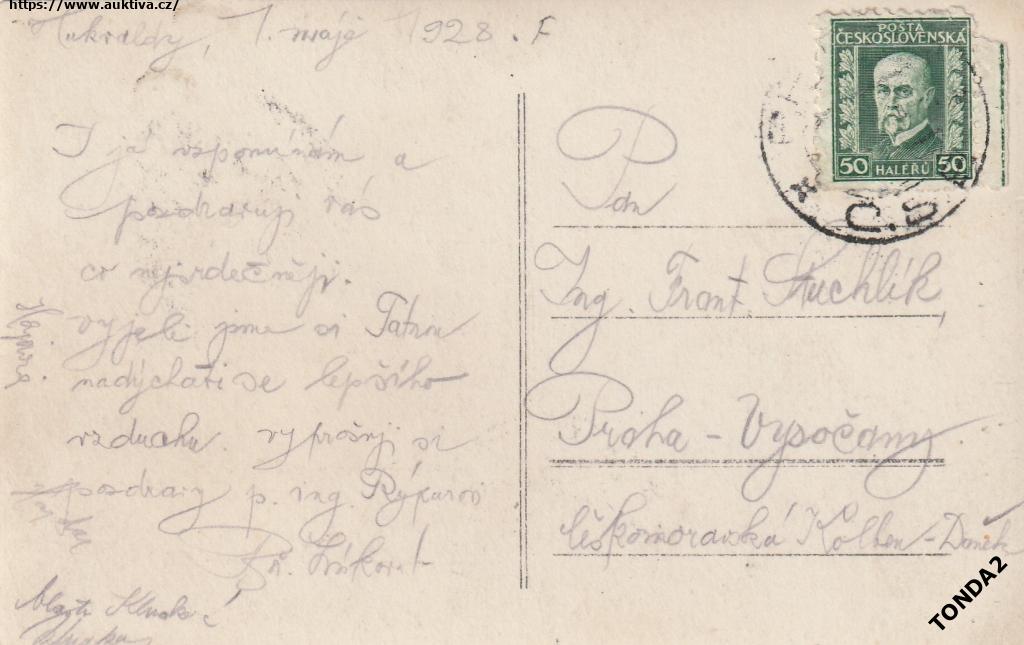 https://www.auktiva.cz/
Hukvaldy, 1. máje 1928. F
I já vzpomínám a
pozdravuji vás
co nejsrdečněji.
vyjeli jsme si Tatrou
nadýchati se lepšího
vzduchu. vyprošuji si
pozdravy p. ing.
POSTA
ČESKOSLOVENSKÁ
50 HALÉŘŮ 50
Č.S.
Pan
Ing. Frant. Stuchlík
Praha - Vysočany
českomoravská Kolben-Daněk
TONDA2